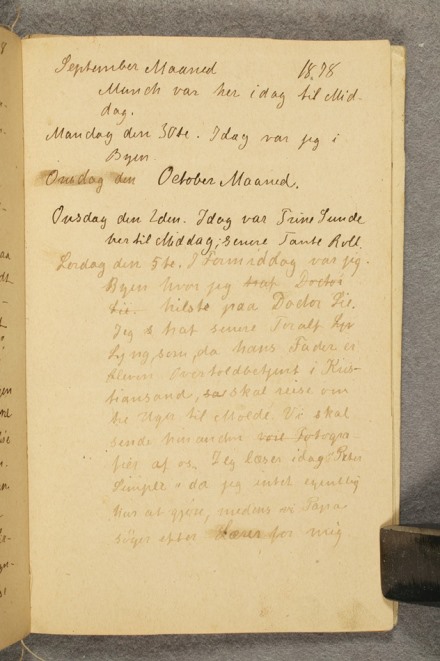 September Maaned 1878
Munch var her idag til Mid-
dag.
Mandag den 30te. Idag var jeg i
Byen.
Onsdag den October Maaned.
Onsdag den 2den. Idag var Trine Lunde
her til Middag; senere Tante Boll.
Lørdag den 5te. I Formiddag var jeg i
Byen hvor jeg traf Doctor
hilste paa Doctor
Jeg har senere Toralf
Lyng, som, da hans Fader er
bleven Overtoldbetjent i Kris-
tiansand, skal reise om
tre Uger til Molde. Vi skal
sende hinandre Fotogra-
fier af os. Jeg læser idag "Peter
Simple" da jeg intet egentlig
har at gjøre, medens Papa
søger efter Lærer for mig